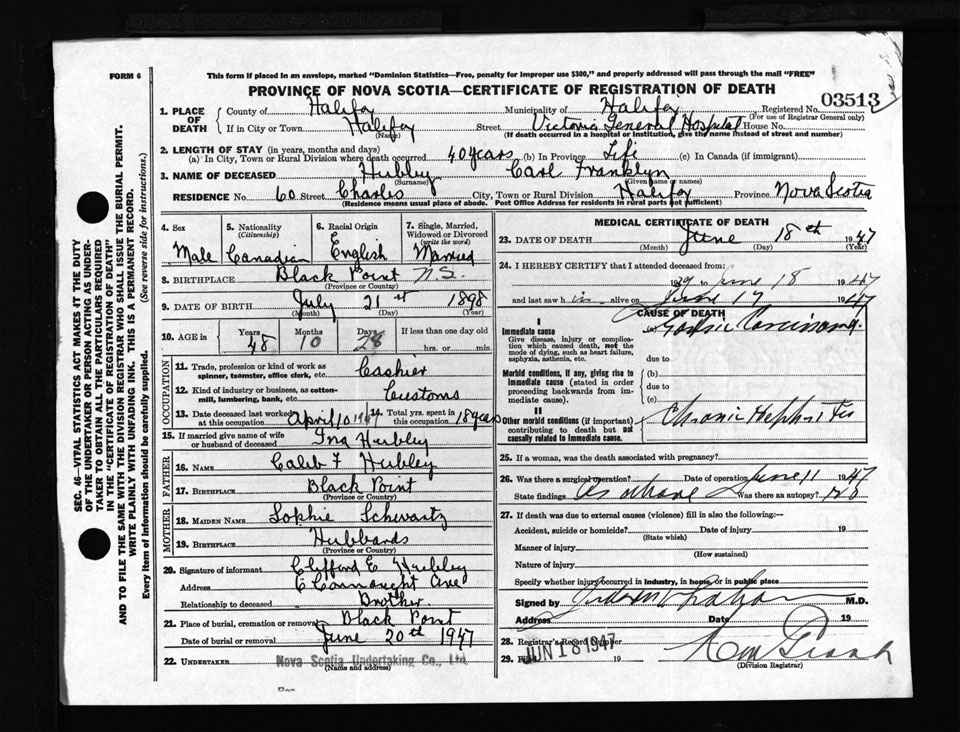 FORM 6
This form if placed in an envelope, marked "Dominion Statistics—Free, penalty for improper use $300," and properly addressed will pass through the mail "FREE"
PROVINCE OF NOVA SCOTIA—CERTIFICATE OF REGISTRATION OF DEATH
03513
1. PLACE OF DEATH
County of Halifax Municipality of Halifax Registered No.
(For use of Registrar General only)
If in City or Town Halifax Street Victoria General Hospital House No.
(Name) (If death occurred in a hospital or institution, give the name instead of street and number)
2. LENGTH OF STAY (in years, months and days)
(a) In City, Town or Rural Division where death occurred 40 years (b) In Province Life (c) In Canada (if immigrant)
3. NAME OF DECEASED Hubley Carl Franklyn
(Surname) (Given name or names)
RESIDENCE No. 60 Street Charles City, Town or Rural Division Halifax Province Nova Scotia
(Residence means usual place of abode. Post Office Address for residents in rural parts not sufficient)
4. Sex Male
5. Nationality (Citizenship) Canadian
6. Racial Origin English
7. Single, Married, Widowed or Divorced (write the word) Married
8. BIRTHPLACE Black Point N.S.
(Province or Country)
9. DATE OF BIRTH July 21st 1898
(Month) (Day) (Year)
10. AGE in Years 48 Months 10 Days 28 If less than one day old
hrs. or min.
OCCUPATION
11. Trade, profession or kind of work as spinner, teamster, office clerk, etc. Cashier
12. Kind of industry or business, as cotton-mill, lumbering, bank, etc. Customs
13. Date deceased last worked at this occupation April 10 1947 14. Total yrs. spent in this occupation 18 years
15. If married give name of wife or husband of deceased Ina Hubley
FATHER
16. NAME Caleb F Hubley
17. BIRTHPLACE Black Point
(Province or Country)
MOTHER
18. MAIDEN NAME Sophie Schwartz
19. BIRTHPLACE Hubbards
(Province or Country)
20. Signature of informant Clifford E Hubley
Address Connaught Ave
Relationship to deceased Brother
21. Place of burial, cremation or removal Black Point
Date of burial or removal June 20th 1947
22. UNDERTAKER Nova Scotia Undertaking Co., Ltd.
(Name and address)
MEDICAL CERTIFICATE OF DEATH
23. DATE OF DEATH June 18th 1947
(Month) (Day) (Year)
24. I HEREBY CERTIFY that I attended deceased from:
19 June 18 1947
and last saw h im alive on June 17 1947
CAUSE OF DEATH
I
Immediate cause (a) Carcinoma
Give disease, injury or complication which caused death, not the mode of dying, such as heart failure, asphyxia, asthenia, etc.
due to
Morbid conditions, if any, giving rise to immediate cause (stated in order proceeding backwards from immediate cause).
(b)
due to
(c)
II
Other morbid conditions (if important) contributing to death but not causally related to immediate cause. Chronic Nephritis
25. If a woman, was the death associated with pregnancy?
26. Was there a surgical operation? Date of operation June 11 1947
State findings as above Was there an autopsy?
27. If death was due to external causes (violence) fill in also the following:—
Accident, suicide or homicide? Date of injury 19
(State which)
Manner of injury
(How sustained)
Nature of injury
Specify whether injury occurred in industry, in home, or in public place
Signed by M.D.
Address Date 19
28. Registrar's Record Number
29. JUN 18 1947 19
(Division Registrar)
SEC. 46—VITAL STATISTICS ACT MAKES IT THE DUTY
OF THE UNDERTAKER OR PERSON ACTING AS UNDER-
TAKER TO OBTAIN ALL THE PARTICULARS REQUIRED
IN THE "CERTIFICATE OF REGISTRATION OF DEATH"
AND TO FILE THE SAME WITH THE DIVISION REGISTRAR WHO SHALL ISSUE THE BURIAL PERMIT.
WRITE PLAINLY WITH UNFADING INK. THIS IS A PERMANENT RECORD.
Every item of Information should be carefully supplied. (See reverse side for instructions.)